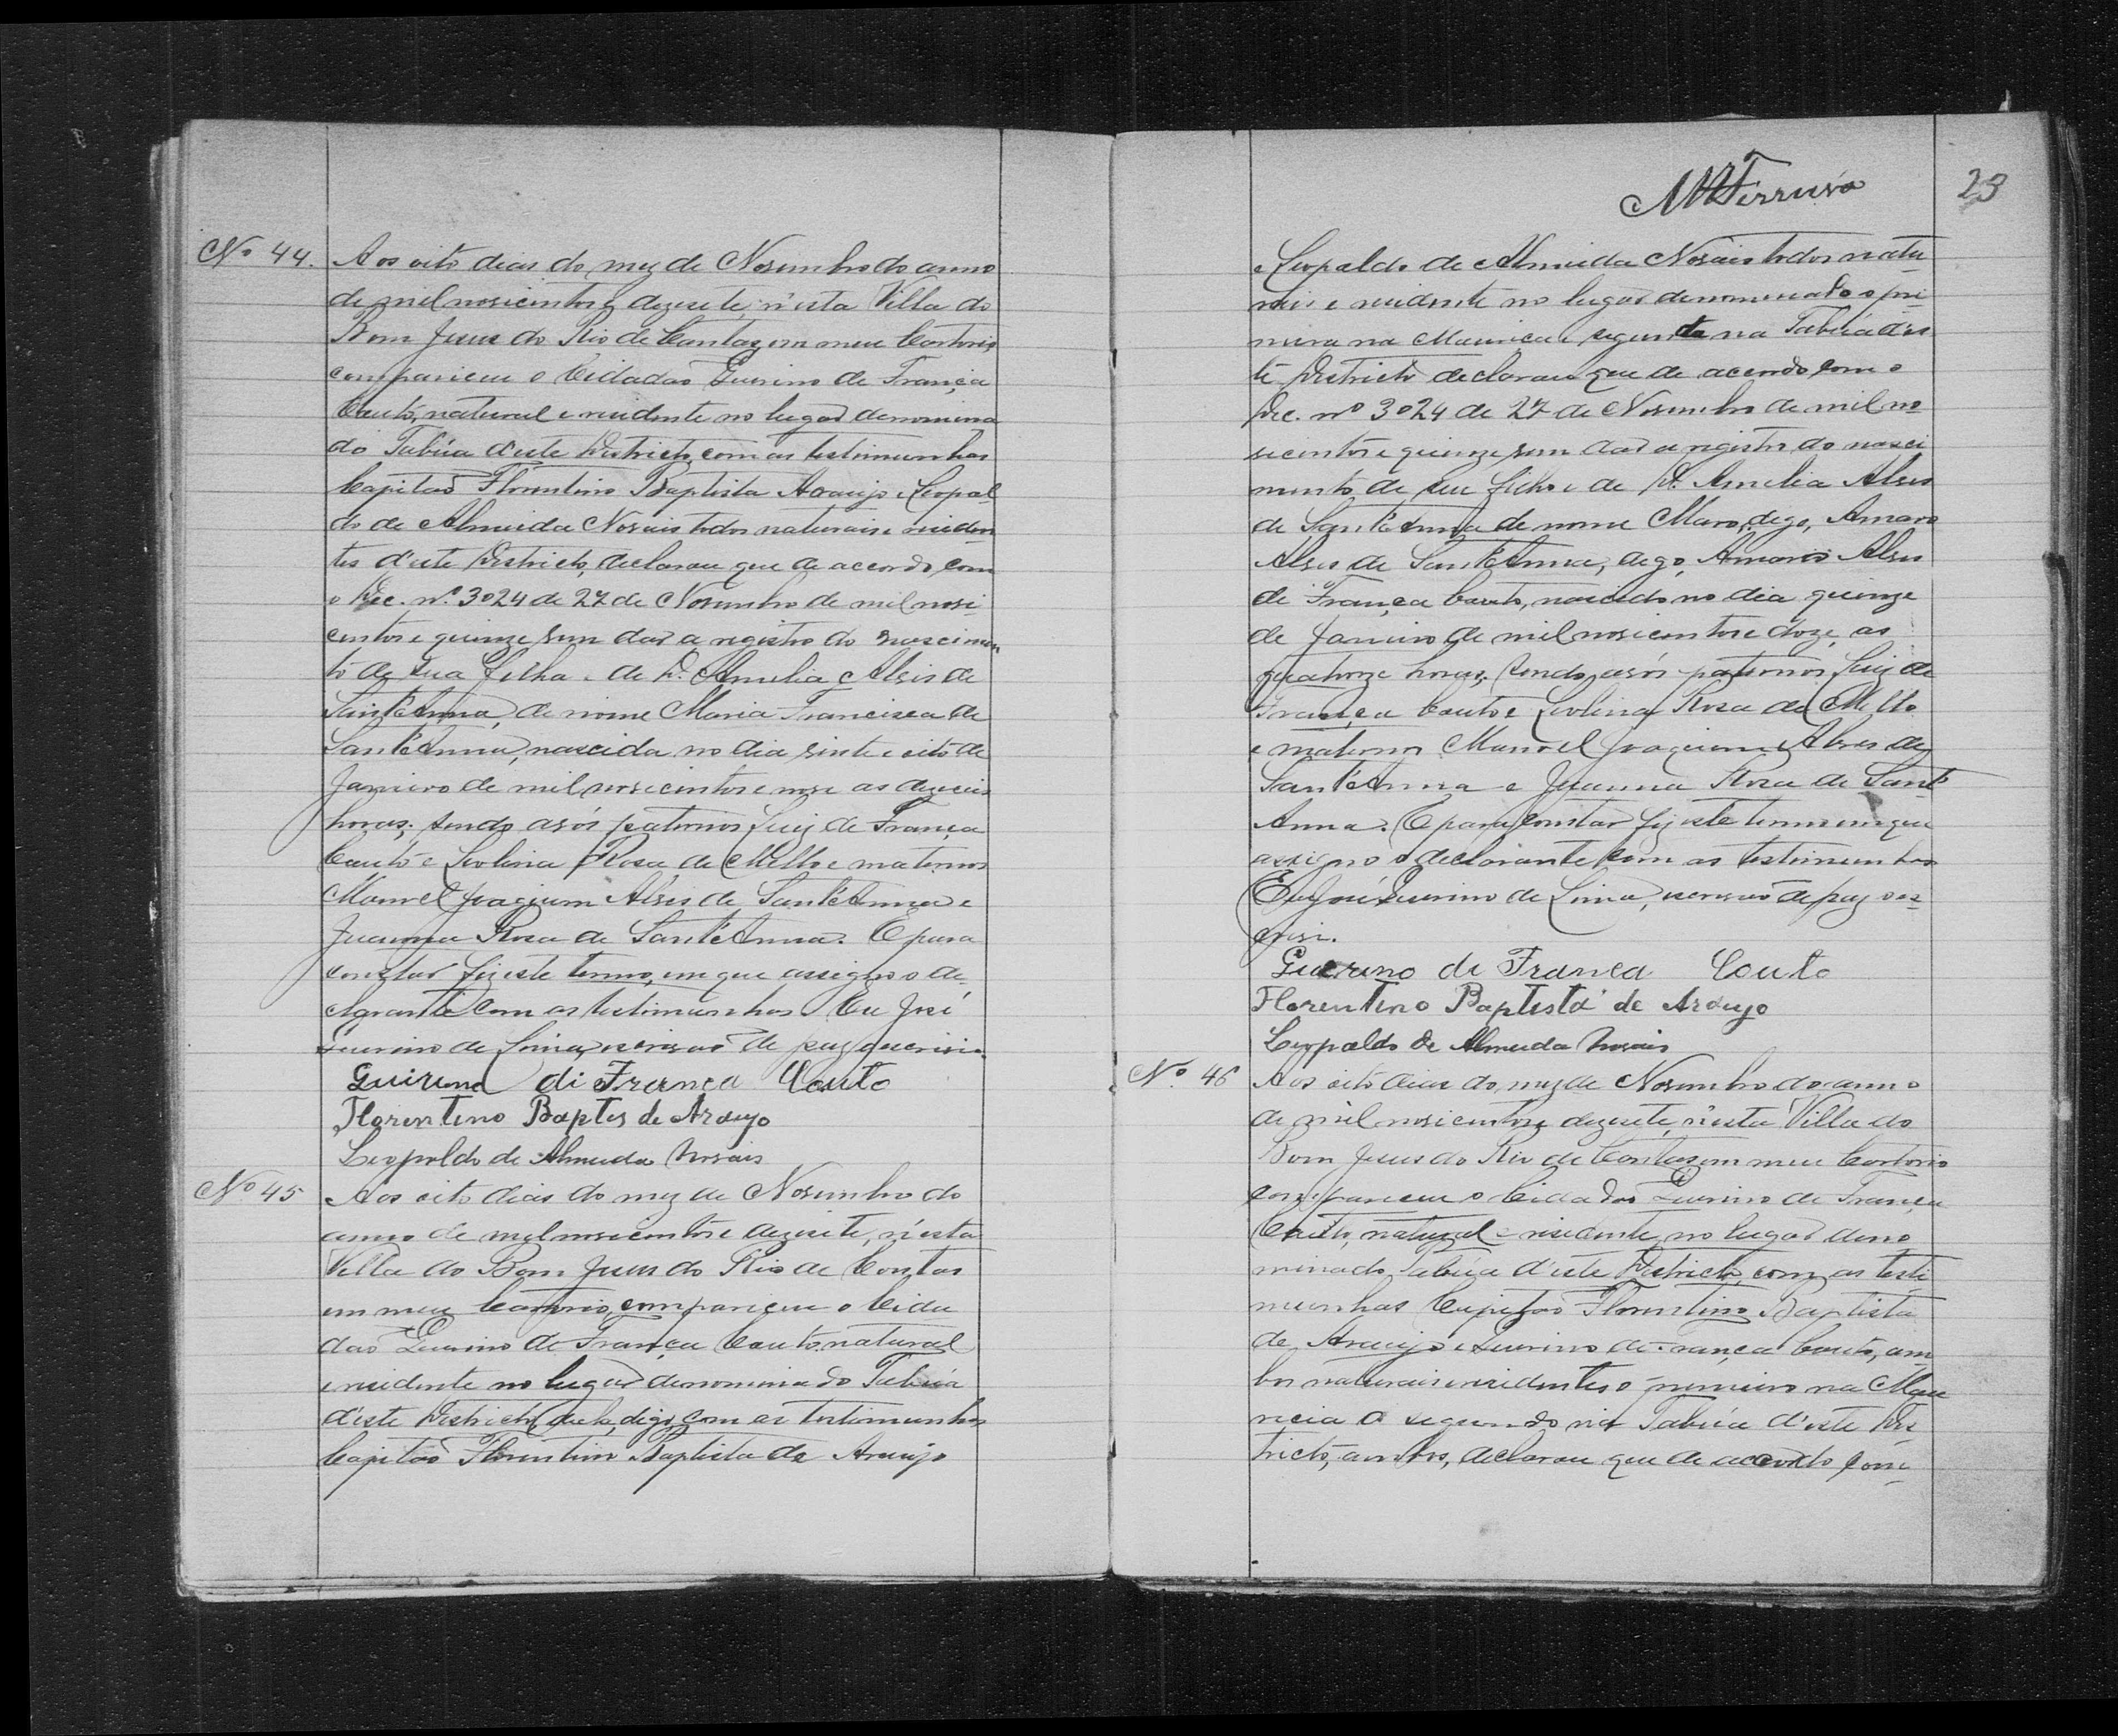 Nº 44. Aos oito dias do mez de Novembro do anno
de mil novicentos e dezesete, n'esta Villa do
Bom Jesus do Rio de Contas, em meu Cartorio,
compariceu o Cidadão Querino de França
Couto, natural e residente no lugar denomina
do Tabúa d'este Districto, com as testimunhas
Capitão Florentino Baptista Araujo e Leopol
do de Almeida Novais todos naturais e residen
tes d'este Districto, declarou que de accordo com
o Dec. nº 3024 de 27 de Novembro de mil novi
centos e quinze, vem dar a registro do nascimen
to de sua filha e de D. Amelia Alves de
Sant'Anna, de nome Maria Francisca de
Sant'Anna, nascida no dia vinte e oito de
Janeiro de mil novicentos e nove as dezeseis
horas; sendo avós paternos Luiz de França
Couto e Leolina Rosa de Mello e maternos
Manoel Joaquim Alves de Sant'Anna e
Juanna Rosa de Sant'Anna. E para
constar fiz este termo, em que assigno o de
clarante com as testimunhas. Eu José
Querino de Lima, escrivão de paz o escrivi.
Guirino di França Couto
Florentino Baptes de Araujo
Leopoldo de Almeida Novais
Nº 45 Aos oito dias do mez de Novembro do
anno de mil novicentos e dezesete, n'esta
Villa do Bom Jesus do Rio de Contas
em meu Cartorio, compariceu o Cida
dão Querino de França Couto, natural
e residente no lugar denominado Tabúa
d'este Districto, digo, com as testimunhas
Capitão Florentino Baptista de Araujo
23
e Leopoldo de Almeida Novais todos natu
rais e residente no lugar denominado o pri
meiro na Mauricia e segundo na Tabúa d'es
te Districto declarou que de accordo com o
Dec. nº 3024 de 27 de Novembro de mil no
vicentos e quinze, vem dar a registro do nasci
mento de seu filho e de D. Amelia Alves
de Sant'Anna de nome Maro, digo, Amaro
Alves de Sant'Anna, digo, Amaro Alves
de França Couto, nascido no dia quinze
de Janeiro de mil novicentos e doze, as
quatorze horas; sendo avós paternos Luiz de
França Couto e Leolina Rosa de Mello
e maternos Manoel Joaquim Alves de
Sant'Anna e Juanna Rosa de Sant'
Anna. E para constar fiz este termo em que
assigno o declarante com as testimunhas
Eu José Querino de Lima, escrivão de paz o es
crivi.
Guerino di Franca Couto
Florentino Baptista de Araujo
Leopoldo de Almeida Novais
Nº 46 Aos oito dias do mez de Novembro do anno
de mil novicentos e dezesete, n'esta Villa do
Bom Jesus do Rio de Contas, em meu Cartorio
compareceu o Cidadão Querino de França
Couto, natural e residente no lugar deno
minado Tabúa d'este Districto, com as testi
munhas Capitão Florentino Baptista
de Araujo e Querino de França Couto, am
bos naturais e residentes o primeiro na Mau
ricia o segundo na Tabúa d'este Dis
tricto, ambos, declarou que de accordo com